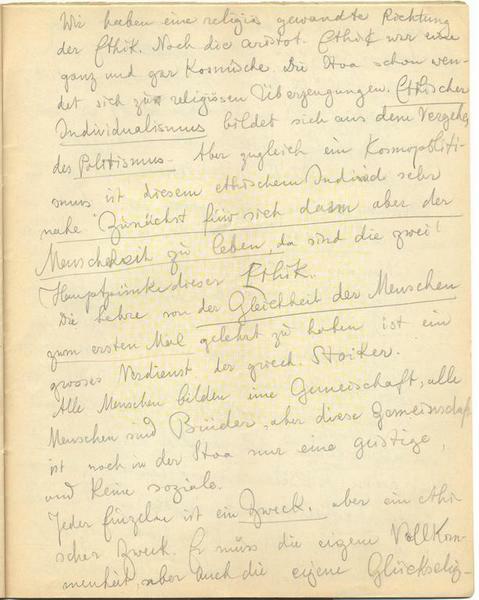 Wir haben eine religiös gewandte Richtung
der Ethik. Noch die aristot. Ethik war eine
ganz und gar Kosmische. Die Stoa schon wen-
det sich zur religiösen Überzeugungen. Ethischer
Individualismus bildet sich aus dem Vergehen
des Politismus. Aber zugleich ein Kosmopoliti-
smus ist diesem ethischem Individ sehr
nahe "Zunächst für sich dann aber der
Menschheit zu leben, da sind die zwei
Hauptpünkte dieser Ethik.
Die Lehre von der Gleichheit der Menschen
zum ersten Mal gelehrt zu haben ist ein
grosses Verdienst der griech. Stoiker.
Alle Menschen bilden eine Gemeischaft, alle
Menschen sind Brüder, aber diese Gemeinschaft
ist noch in der Stoa nur eine geistige,
und keine soziale.
Jeder Einzelne ist ein Zweck. aber ein ethi-
scher Zweck. Er muss die eigene Vollkom-
menheit, aber auch die eigene Glückselig-